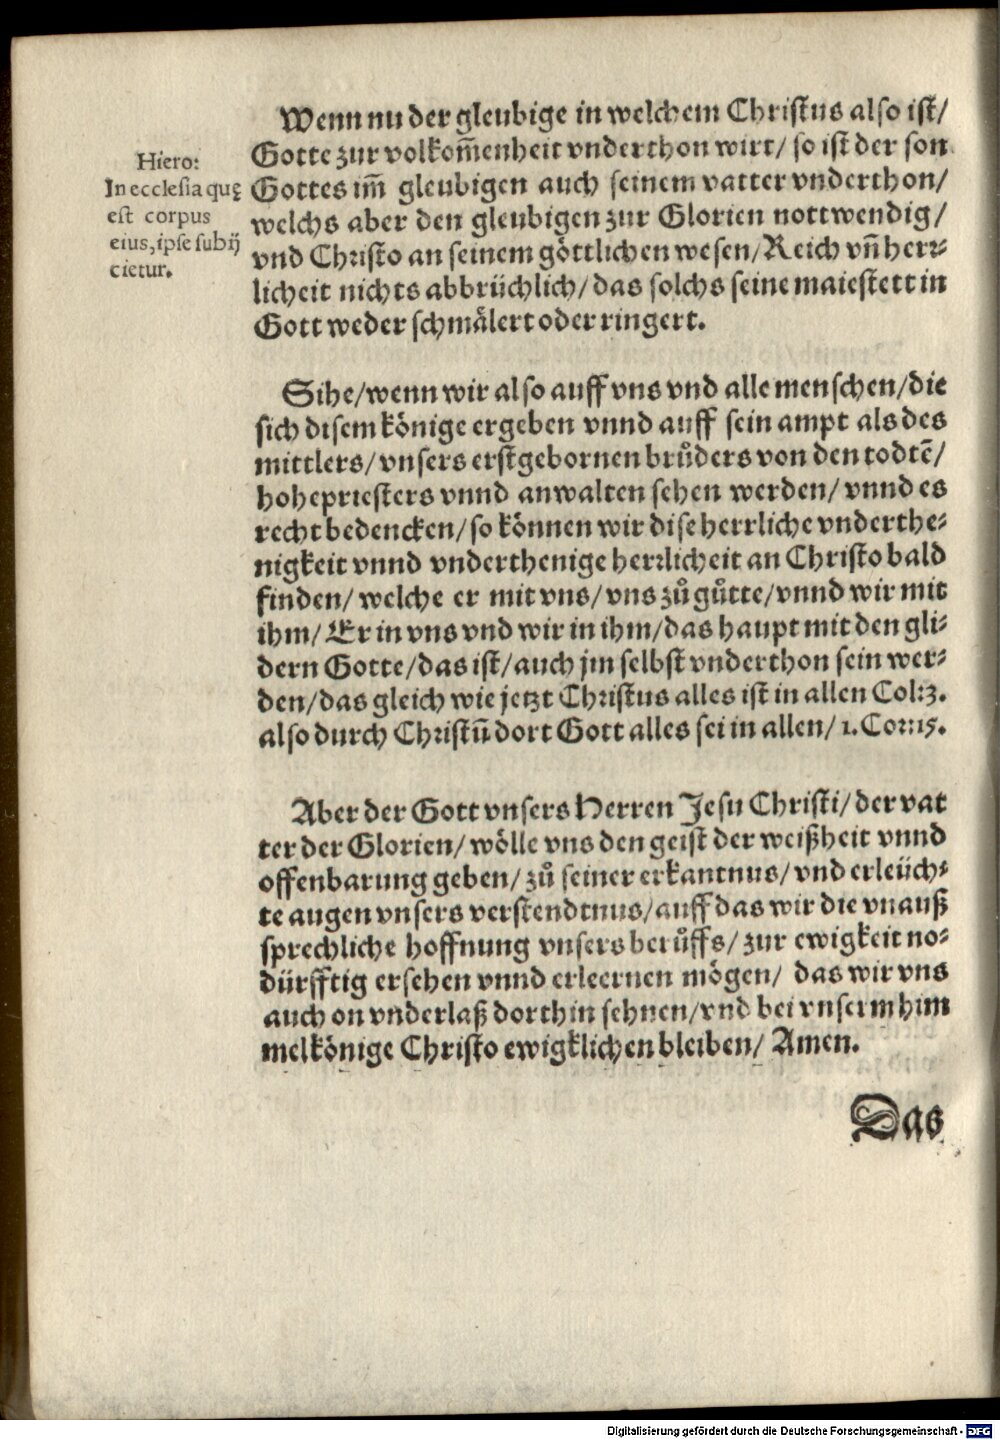 Wenn nu der gleubige in welchem Christus also ist/
Gotte zur volkom̃enheit vnderthon wirt/ so ist der son
Gottes im̃ gleubigen auch seinem vatter vnderthon/
welchs aber den gleubigen zur Glorien nottwendig/
vnd Christo an seinem göttlichen wesen/ Reich vn̄ herr⸗
licheit nichts abbrüchlich/ das solchs seine maiestett in
Gott weder schmälert oder ringert.
Hiero:
In ecclesia quę
est corpus
eius, ipse subij
cietur.
Sihe/ wenn wir also auff vns vnd alle menschen/ die
sich disem könige ergeben vnnd auff sein ampt als des
mittlers/ vnsers erstgebornen brůders von den todtē/
hohepriesters vnnd anwalten sehen werden/ vnnd es
recht bedencken/ so können wir dise herrliche vnderthe⸗
nigkeit vnnd vnderthenige herrlicheit an Christo bald
finden/ welche er mit vns/ vns zů gůtte/ vnnd wir mit
ihm/ Er in vns vnd wir in ihm/ das haupt mit den gli⸗
dern Gotte/ das ist/ auch jm selbst vnderthon sein wer⸗
den/ das gleich wie jetzt Christus alles ist in allen Col:3.
also durch Christū dort Gott alles sei in allen/ 1. Cor:15.
Aber der Gott vnsers Herren Jesu Christi/ der vat
ter der Glorien/ wölle vns den geist der weißheit vnnd
offenbarung geben/ zů seiner erkantnus/ vnd erleüch⸗
te augen vnsers verstendtnus/ auff das wir die vnauß
sprechliche hoffnung vnsers berůffs/ zur ewigkeit no⸗
dürfftig ersehen vnnd erleernen mögen/ das wir vns
auch on vnderlaß dorthin sehnen/ vnd bei vnserm him
melkönige Christo ewigklichen bleiben/ Amen.
Das
Digitalisierung gefördert durch die Deutsche Forschungsgemeinschaft - DFG